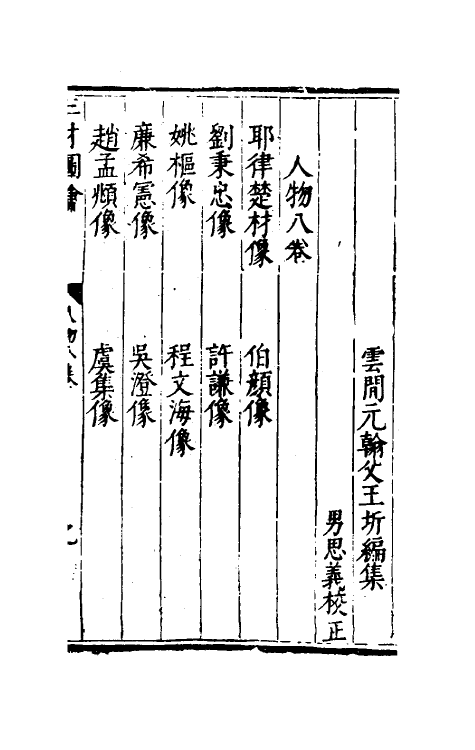 雲間元翰父王圻編集
男思義校正
人物八卷
耶律楚材像 伯顏像
劉秉忠像 許謙像
姚樞像 程文海像
廉希憲像 吳澄像
趙孟頫像 虞集像
三才圖會 人物八卷